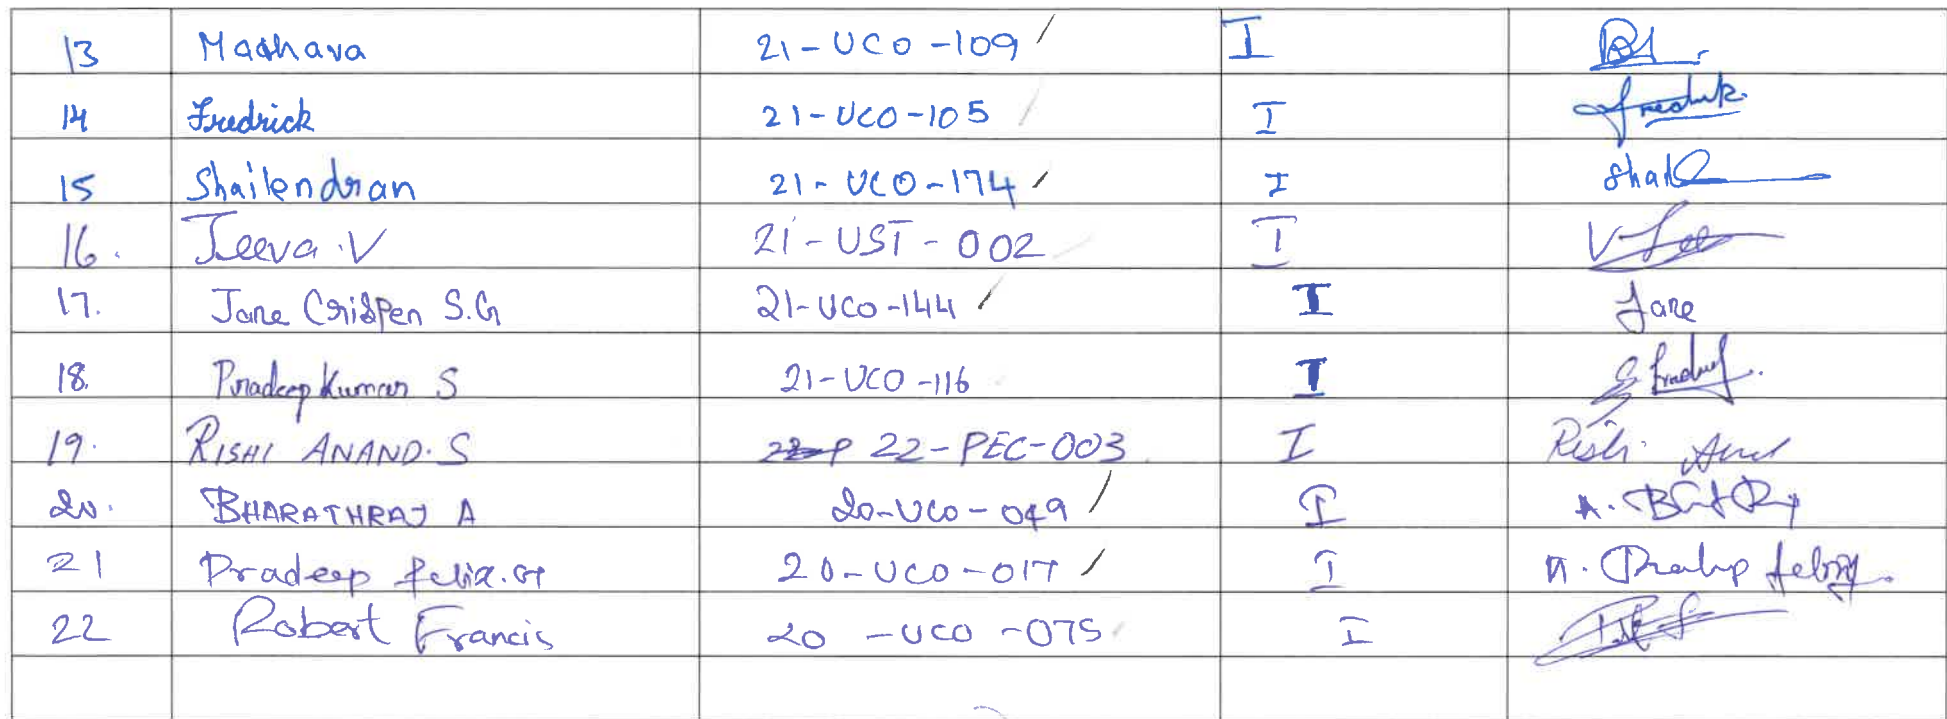 13 Madhava 21-UCO-109 I
14 Fredrick 21-UCO-105 I Fredrik.
15 Shailendran 21-UCO-174 I Shail
16. Jeeva.V 21-UST-002 I V Jee
17. Jane Crispen S.G 21-UCO-144 I Jane
18. Pradeep Kumar S 21-UCO-116 I
19. RISHI ANAND.S 22-PEC-003 I Rishi Anand
20. BHARATHRAJ A 20-UCO-049 I
21 Pradeep felix.G 20-UCO-017 I
22 Robert Francis 20-UCO-075 I